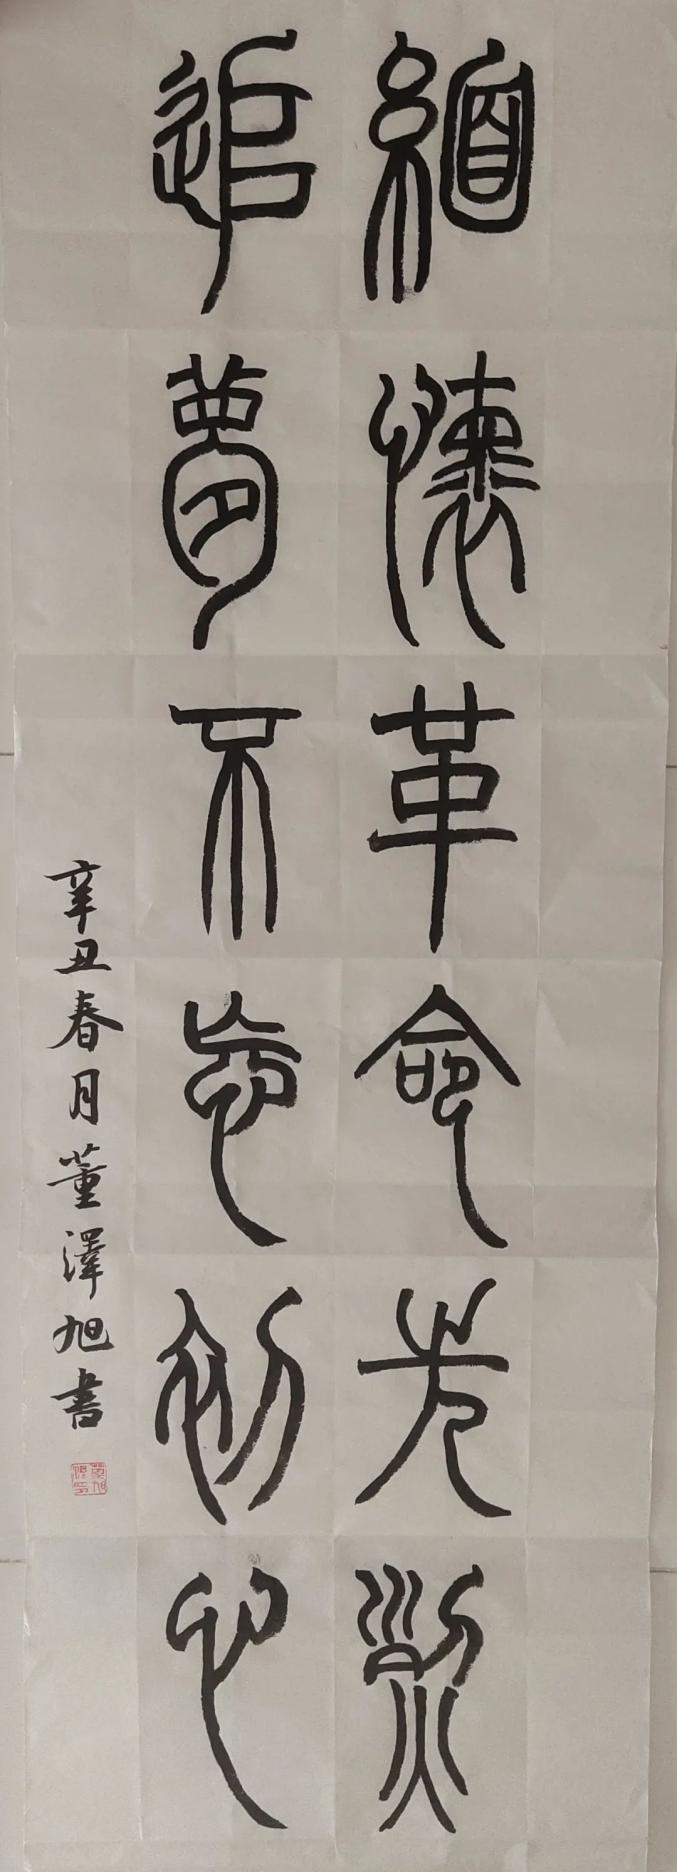 緬懷革命先烈
追夢不忘初心
辛丑春月董澤旭書